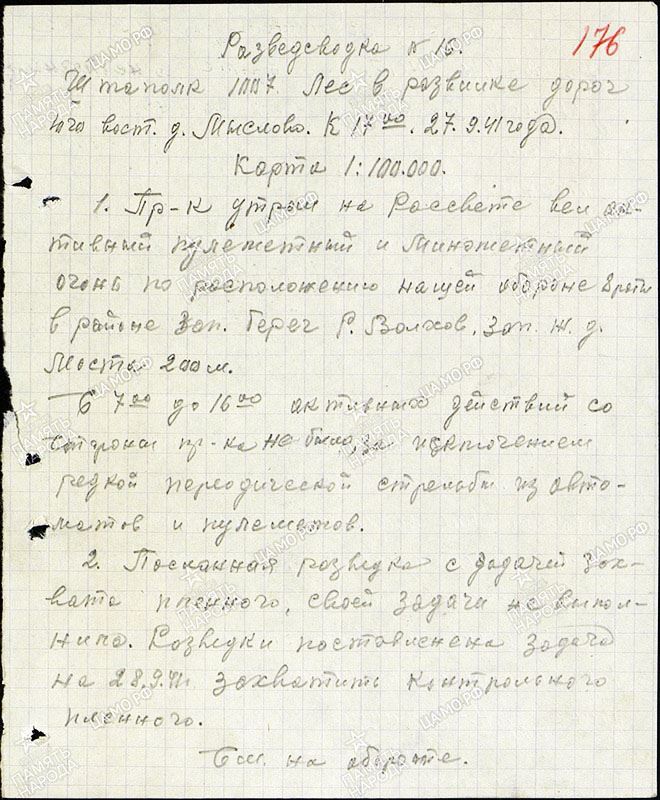 176
Разведсводка № 16.
Штаполк 1007. Лес в развилке дорог
юго вост. д. Мыслово. К 17 00. 27.9.41 года.
Карта 1:100.000.
1. Пр-к утром на Рассвете вел ак-
тивный пулеметный и Минометный
огонь по расположению нашей обороне
в районе Зап. берег Р. Волхов, Зап. ж. д.
Моста 200 м.
С 7 00 до 16 00 активных действий со
стороны пр-ка не было, за исключением
редкой периодической стрельбы из авто-
матов и пулеметов.
2. Посланная разведка с задачей зах-
вата пленного, своей задачи не выпол-
нила. Розведки поставлена задача
на 28.9.41 захватить контрольного
пленного.
См. на обороте.